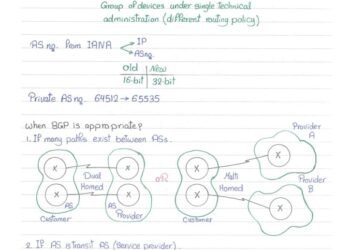 Group of devices under single technical
administration (different routing policy)
AS no. from IANA
IP
AS no.
Old New
16-bit 32-bit
Private AS no. 64512 → 65535
When BGP is appropriate?
1. If many paths exist between ASs.
Provider
A
X X X X
Dual Multi
Homed OR Homed
X X X X
AS AS
Provider
B
Customer Provider Customer
2. IP AS is transit AS (service provider).